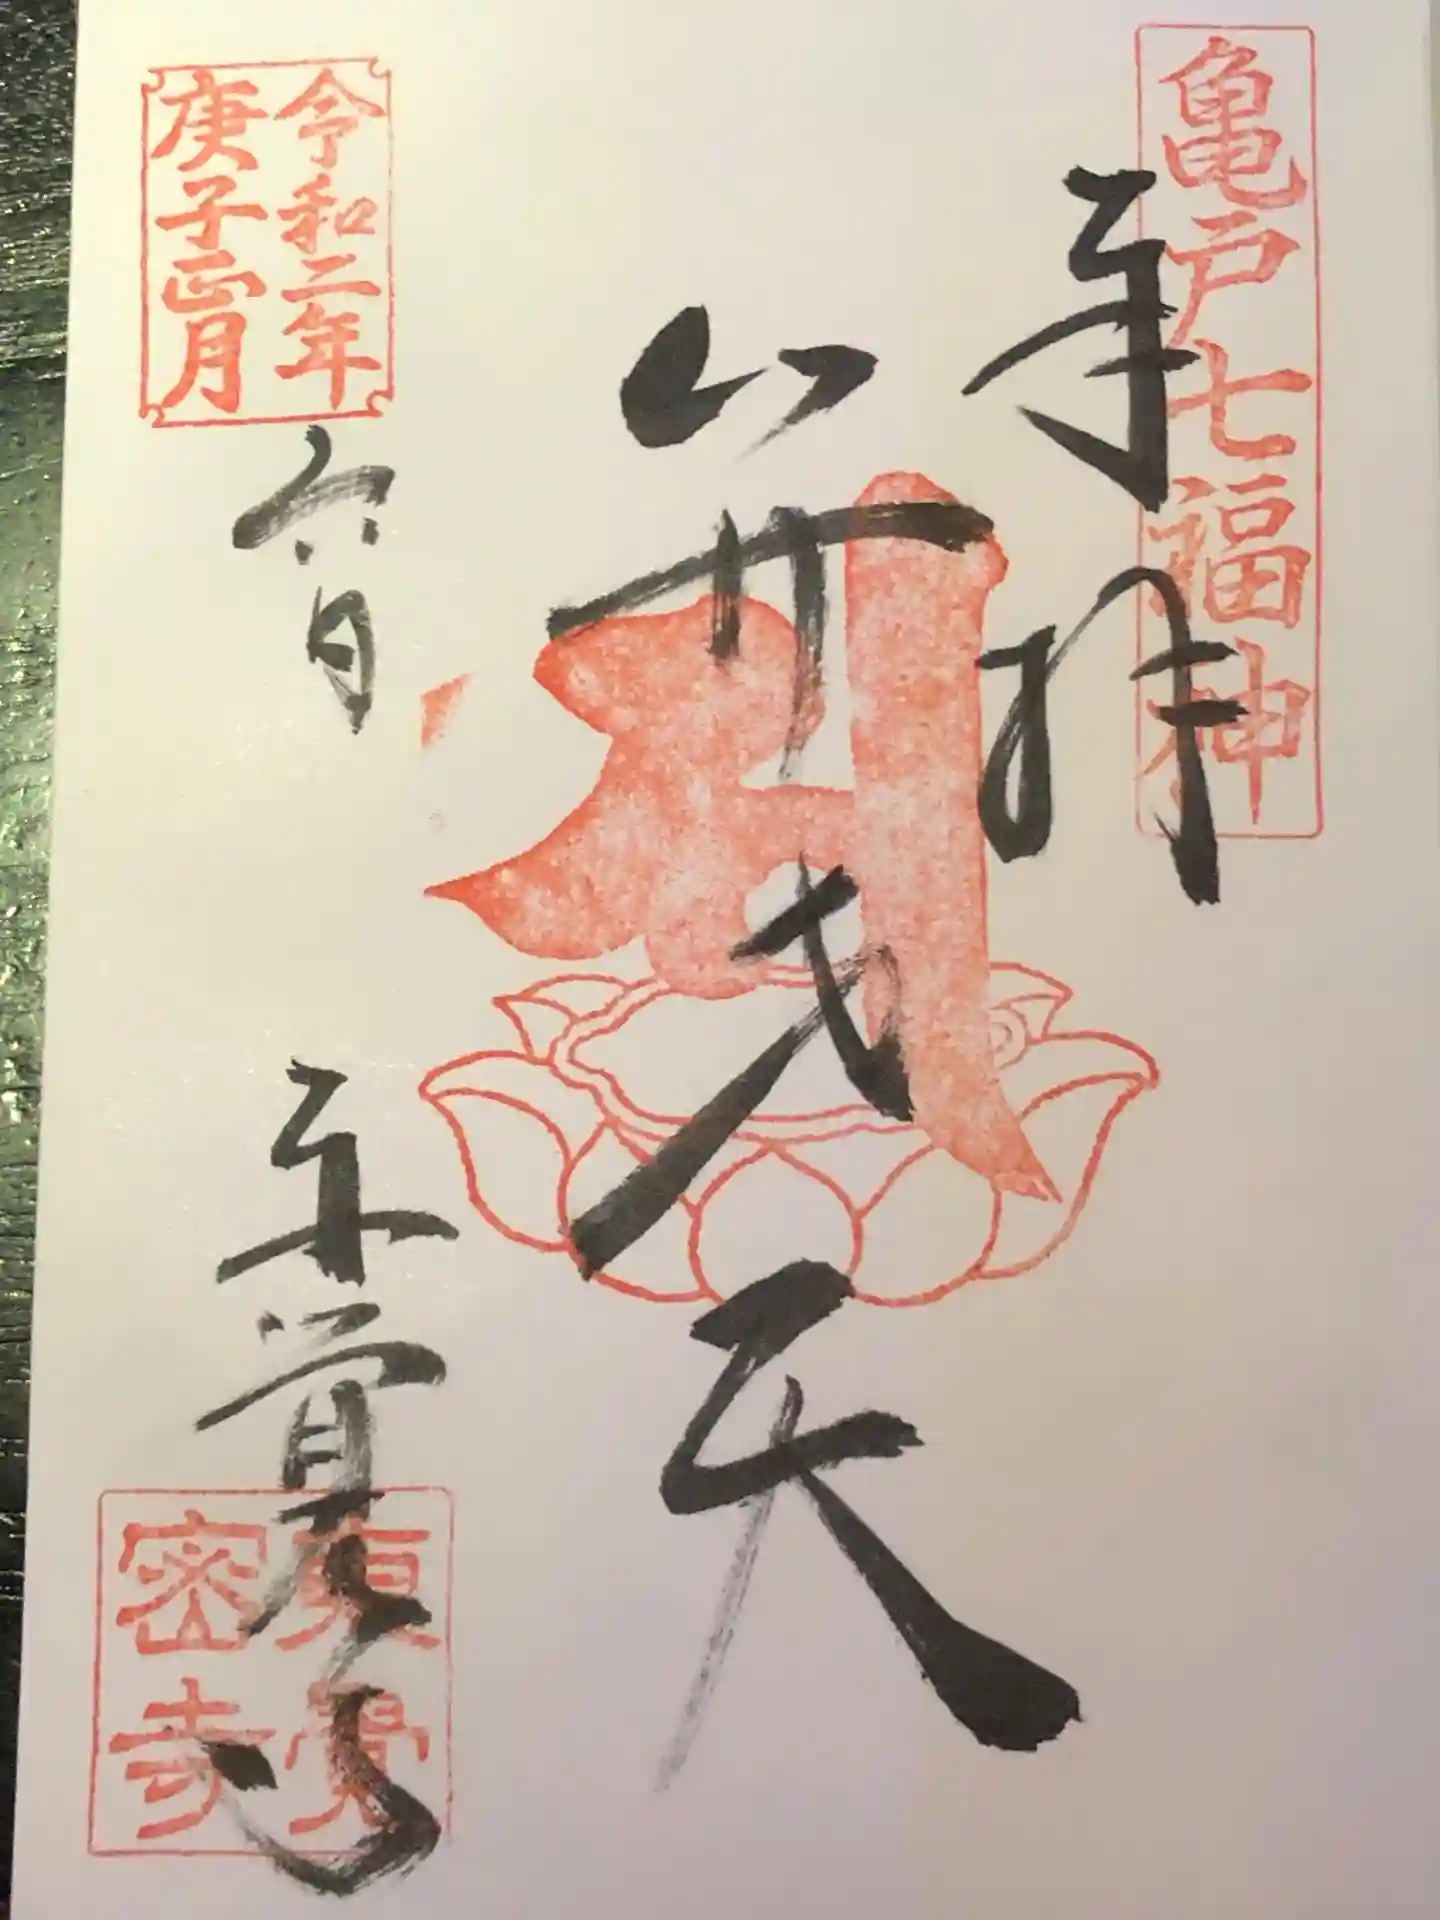 亀戸七福神
奉拝
弁才天
令和二年
庚子正月
六日
東覚寺
東覺
密寺